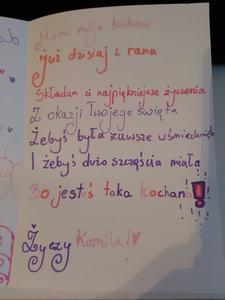 Mamo moja kochana
już dzisiaj z rana
Składam ci najpiękniejsze życzenia
Z okazji Twojego święta
Żebyś była zawsze uśmiechnięta
I żebyś dużo szczęścia miała
Bo jesteś taka kochana!
Życzy Kamila!♥